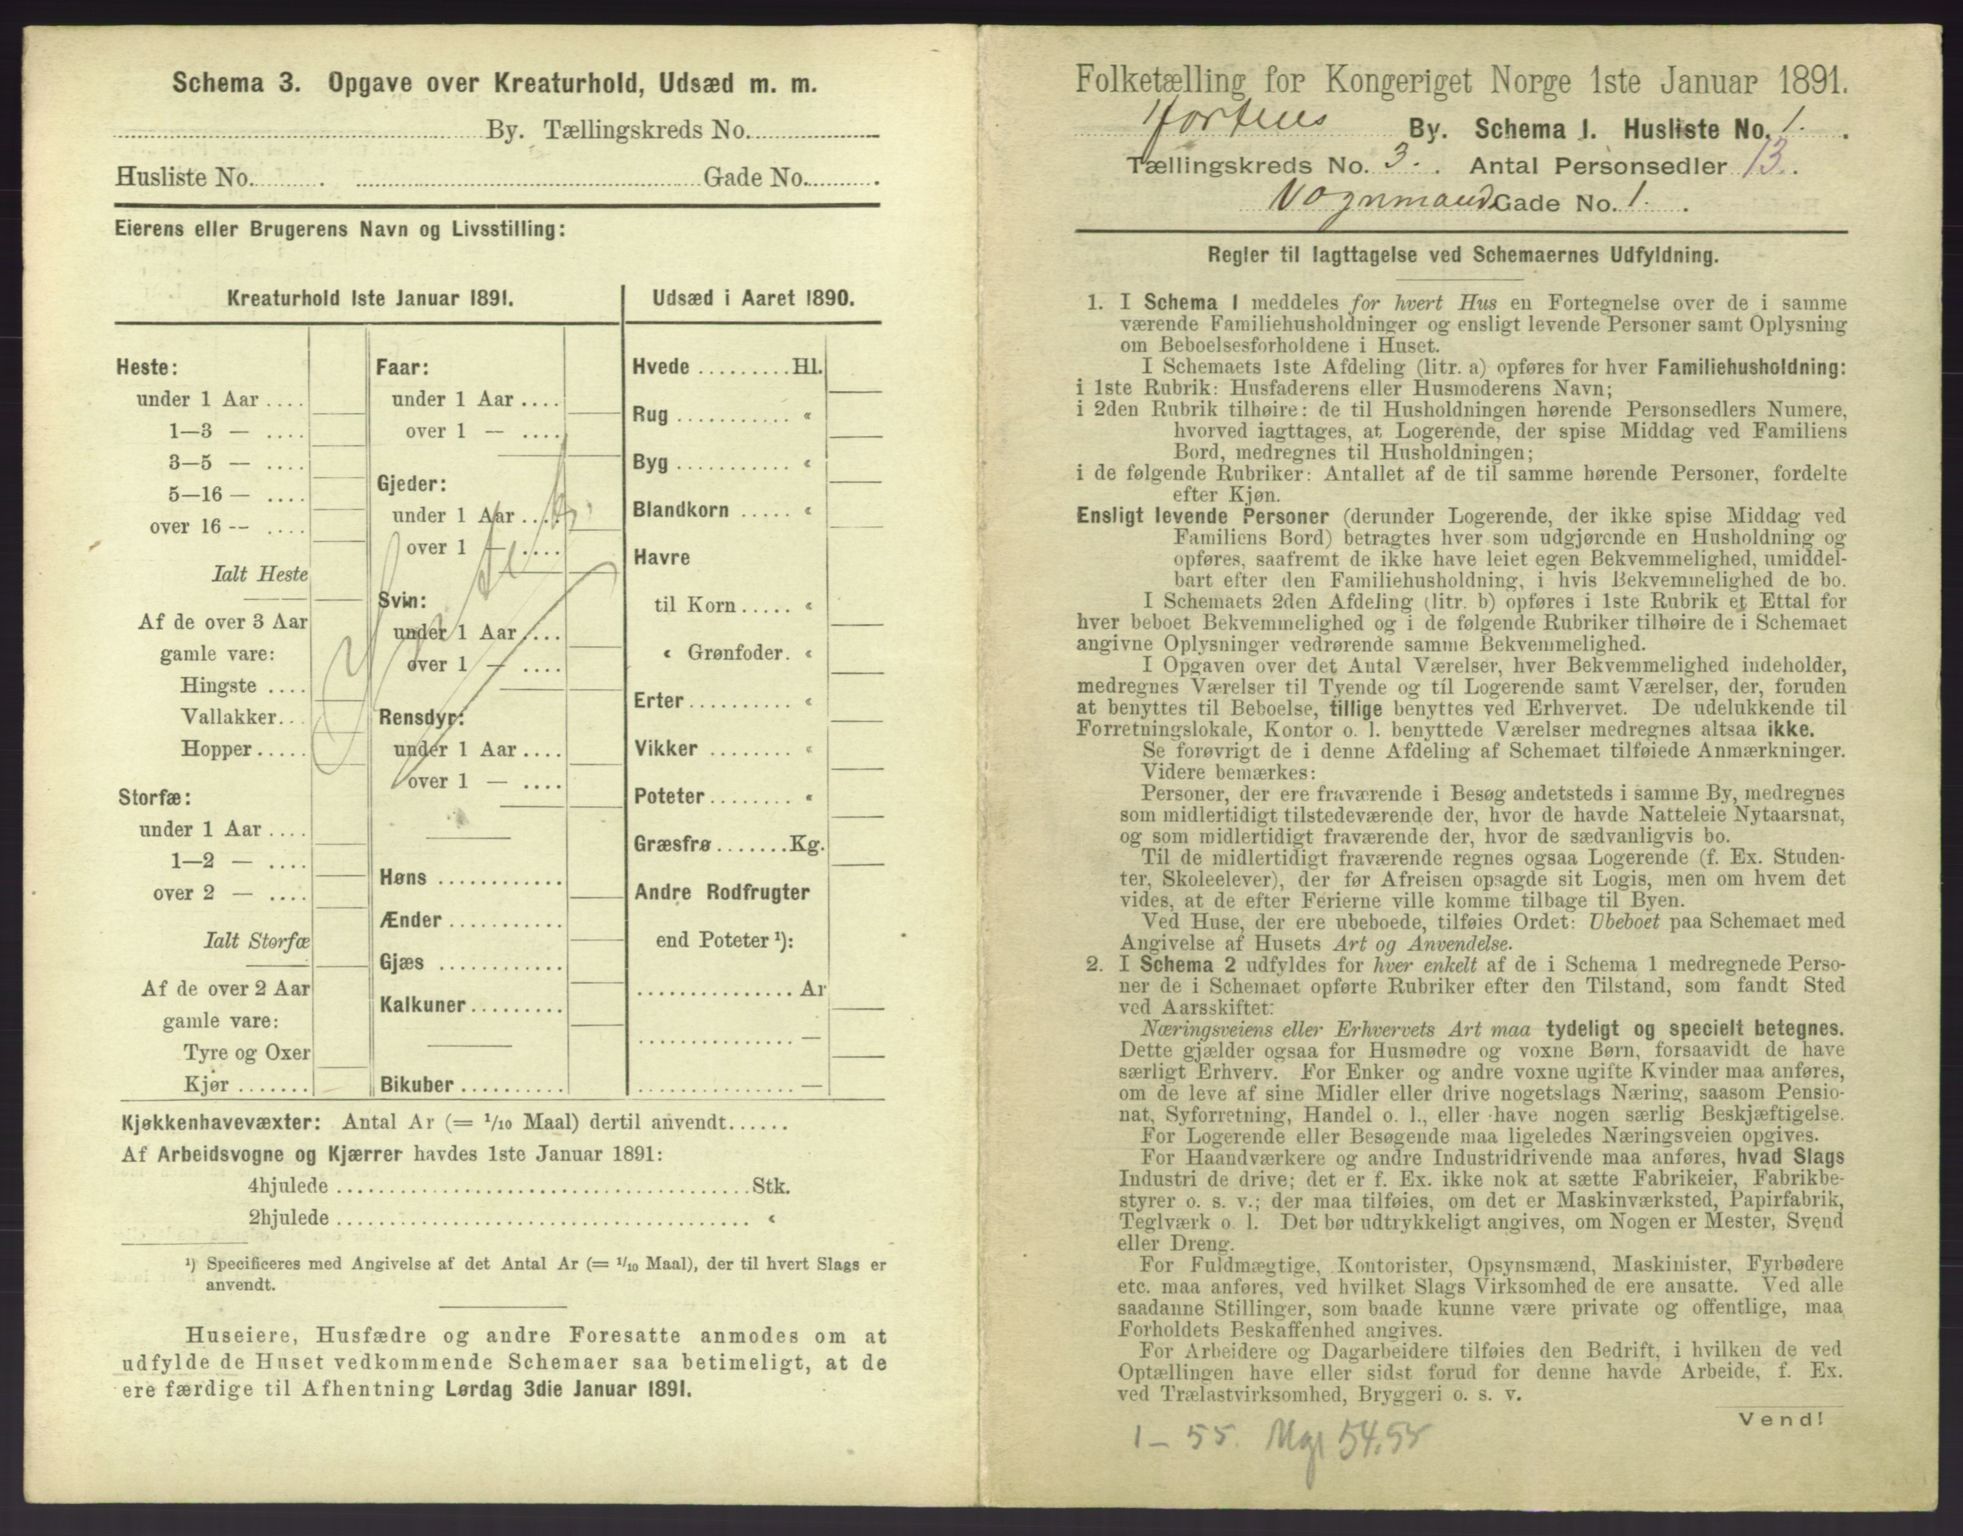 Schema 3. Opgave over Kreaturhold, Udsæd m. m.
By. Tællingskreds No.
Husliste No. . Gade No. .
Eierens eller Brugerens Navn og Livsstilling:
Kreaturhold 1ste Januar 1891.
Heste:
under 1 Aar ....
1—3 — ....
3—5 — ....
5—16 — ....
over 16 -- ....
Ialt Heste
Af de over 3 Aar
gamle vare:
Hingste ....
Vallakker...
Hopper .....
Storfæ:
under 1 Aar ....
1—2 — ....
over 2 — ....
Ialt Storfæ
Af de over 2 Aar
gamle vare:
Tyre og Oxer
Kjør .......
Faar:
under 1 Aar ....
over 1 — ....
Gjeder:
under 1 Aar ....
over 1 — ....
Svin:
under 1 Aar ....
over 1 — ....
Rensdyr:
under 1 Aar ....
over 1 — ....
Høns ............
Ænder ...........
Gjæs ............
Kalkuner .........
Bikuber ..........
Udsæd i Aaret 1890.
Hvede ......... Hl.
Rug ........... «
Byg ........... «
Blandkorn ..... «
Havre
til Korn ..... «
« Grønfoder. «
Erter .......... «
Vikker ........ «
Poteter ........ «
Græsfrø ....... Kg.
Andre Rodfrugter
end Poteter ¹):
............... Ar
............... —
............... —
Kjøkkenhavevæxter: Antal Ar (= 1/10 Maal) dertil anvendt......
Af Arbeidsvogne og Kjærrer havdes 1ste Januar 1891:
4hjulede ........................................ Stk.
2hjulede ........................................ «
¹) Specificeres med Angivelse af det Antal Ar (= 1/10 Maal), der til hvert Slags er
anvendt.
Huseiere, Husfædre og andre Foresatte anmodes om at
udfylde de Huset vedkommende Schemaer saa betimeligt, at de
ere færdige til Afhentning Lørdag 3die Januar 1891.
Folketælling for Kongeriget Norge 1ste Januar 1891.
Hortens By. Schema 1. Husliste No. 1. .
Tællingskreds No. 3. . Antal Personsedler 13. .
Vognmands Gade No. 1. .
Regler til Iagttagelse ved Schemaernes Udfyldning.
1. I Schema 1 meddeles for hvert Hus en Fortegnelse over de i samme
værende Familiehusholdninger og ensligt levende Personer samt Oplysning
om Beboelsesforholdene i Huset.
I Schemaets 1ste Afdeling (litr. a) opføres for hver Familiehusholdning:
i 1ste Rubrik: Husfaderens eller Husmoderens Navn;
i 2den Rubrik tilhøire: de til Husholdningen hørende Personsedlers Numere,
hvorved iagttages, at Logerende, der spise Middag ved Familiens
Bord, medregnes til Husholdningen;
i de følgende Rubriker: Antallet af de til samme hørende Personer, fordelte
efter Kjøn.
Ensligt levende Personer (derunder Logerende, der ikke spise Middag ved
Familiens Bord) betragtes hver som udgjørende en Husholdning og
opføres, saafremt de ikke have leiet egen Bekvemmelighed, umiddel-
bart efter den Familiehusholdning, i hvis Bekvemmelighed de bo.
I Schemaets 2den Afdeling (litr. b) opføres i 1ste Rubrik et Ettal for
hver beboet Bekvemmelighed og i de følgende Rubriker tilhøire de i Schemaet
angivne Oplysninger vedrørende samme Bekvemmelighed.
I Opgaven over det Antal Værelser, hver Bekvemmelighed indeholder,
medregnes Værelser til Tyende og til Logerende samt Værelser, der, foruden
at benyttes til Beboelse, tillige benyttes ved Erhvervet. De udelukkende til
Forretningslokale, Kontor o. l. benyttede Værelser medregnes altsaa ikke.
Se forøvrigt de i denne Afdeling af Schemaet tilføiede Anmærkninger.
Videre bemærkes:
Personer, der ere fraværende i Besøg andetsteds i samme By, medregnes
som midlertidigt tilstedeværende der, hvor de havde Natteleie Nytaarsnat,
og som midlertidigt fraværende der, hvor de sædvanligvis bo.
Til de midlertidigt fraværende regnes ogsaa Logerende (f. Ex. Studen-
ter, Skoleelever), der før Afreisen opsagde sit Logis, men om hvem det
vides, at de efter Ferierne ville komme tilbage til Byen.
Ved Huse, der ere ubeboede, tilføies Ordet: Ubeboet paa Schemaet med
Angivelse af Husets Art og Anvendelse.
2. I Schema 2 udfyldes for hver enkelt af de i Schema 1 medregnede Perso-
ner de i Schemaet opførte Rubriker efter den Tilstand, som fandt Sted
ved Aarsskiftet:
Næringsveiens eller Erhvervets Art maa tydeligt og specielt betegnes.
Dette gjælder ogsaa for Husmødre og voxne Børn, forsaavidt de have
særligt Erhverv. For Enker og andre voxne ugifte Kvinder maa anføres,
om de leve af sine Midler eller drive nogetslags Næring, saasom Pensio-
nat, Syforretning, Handel o. l., eller have nogen særlig Beskjæftigelse.
For Logerende eller Besøgende maa ligeledes Næringsveien opgives.
For Haandværkere og andre Industridrivende maa anføres, hvad Slags
Industri de drive; det er f. Ex. ikke nok at sætte Fabrikeier, Fabrikbe-
styrer o. s. v.; der maa tilføies, om det er Maskinværksted, Papirfabrik,
Teglværk o. l. Det bør udtrykkeligt angives, om Nogen er Mester, Svend
eller Dreng.
For Fuldmægtige, Kontorister, Opsynsmænd, Maskinister, Fyrbødere
etc. maa anføres, ved hvilket Slags Virksomhed de ere ansatte. Ved alle
saadanne Stillinger, som baade kunne være private og offentlige, maa
Forholdets Beskaffenhed angives.
For Arbeidere og Dagarbeidere tilføies den Bedrift, i hvilken de ved
Optællingen have eller sidst forud for denne havde Arbeide, f. Ex.
ved Trælastvirksomhed, Bryggeri o. s. v.
Vend!
1 — 55. Mgl 54.55